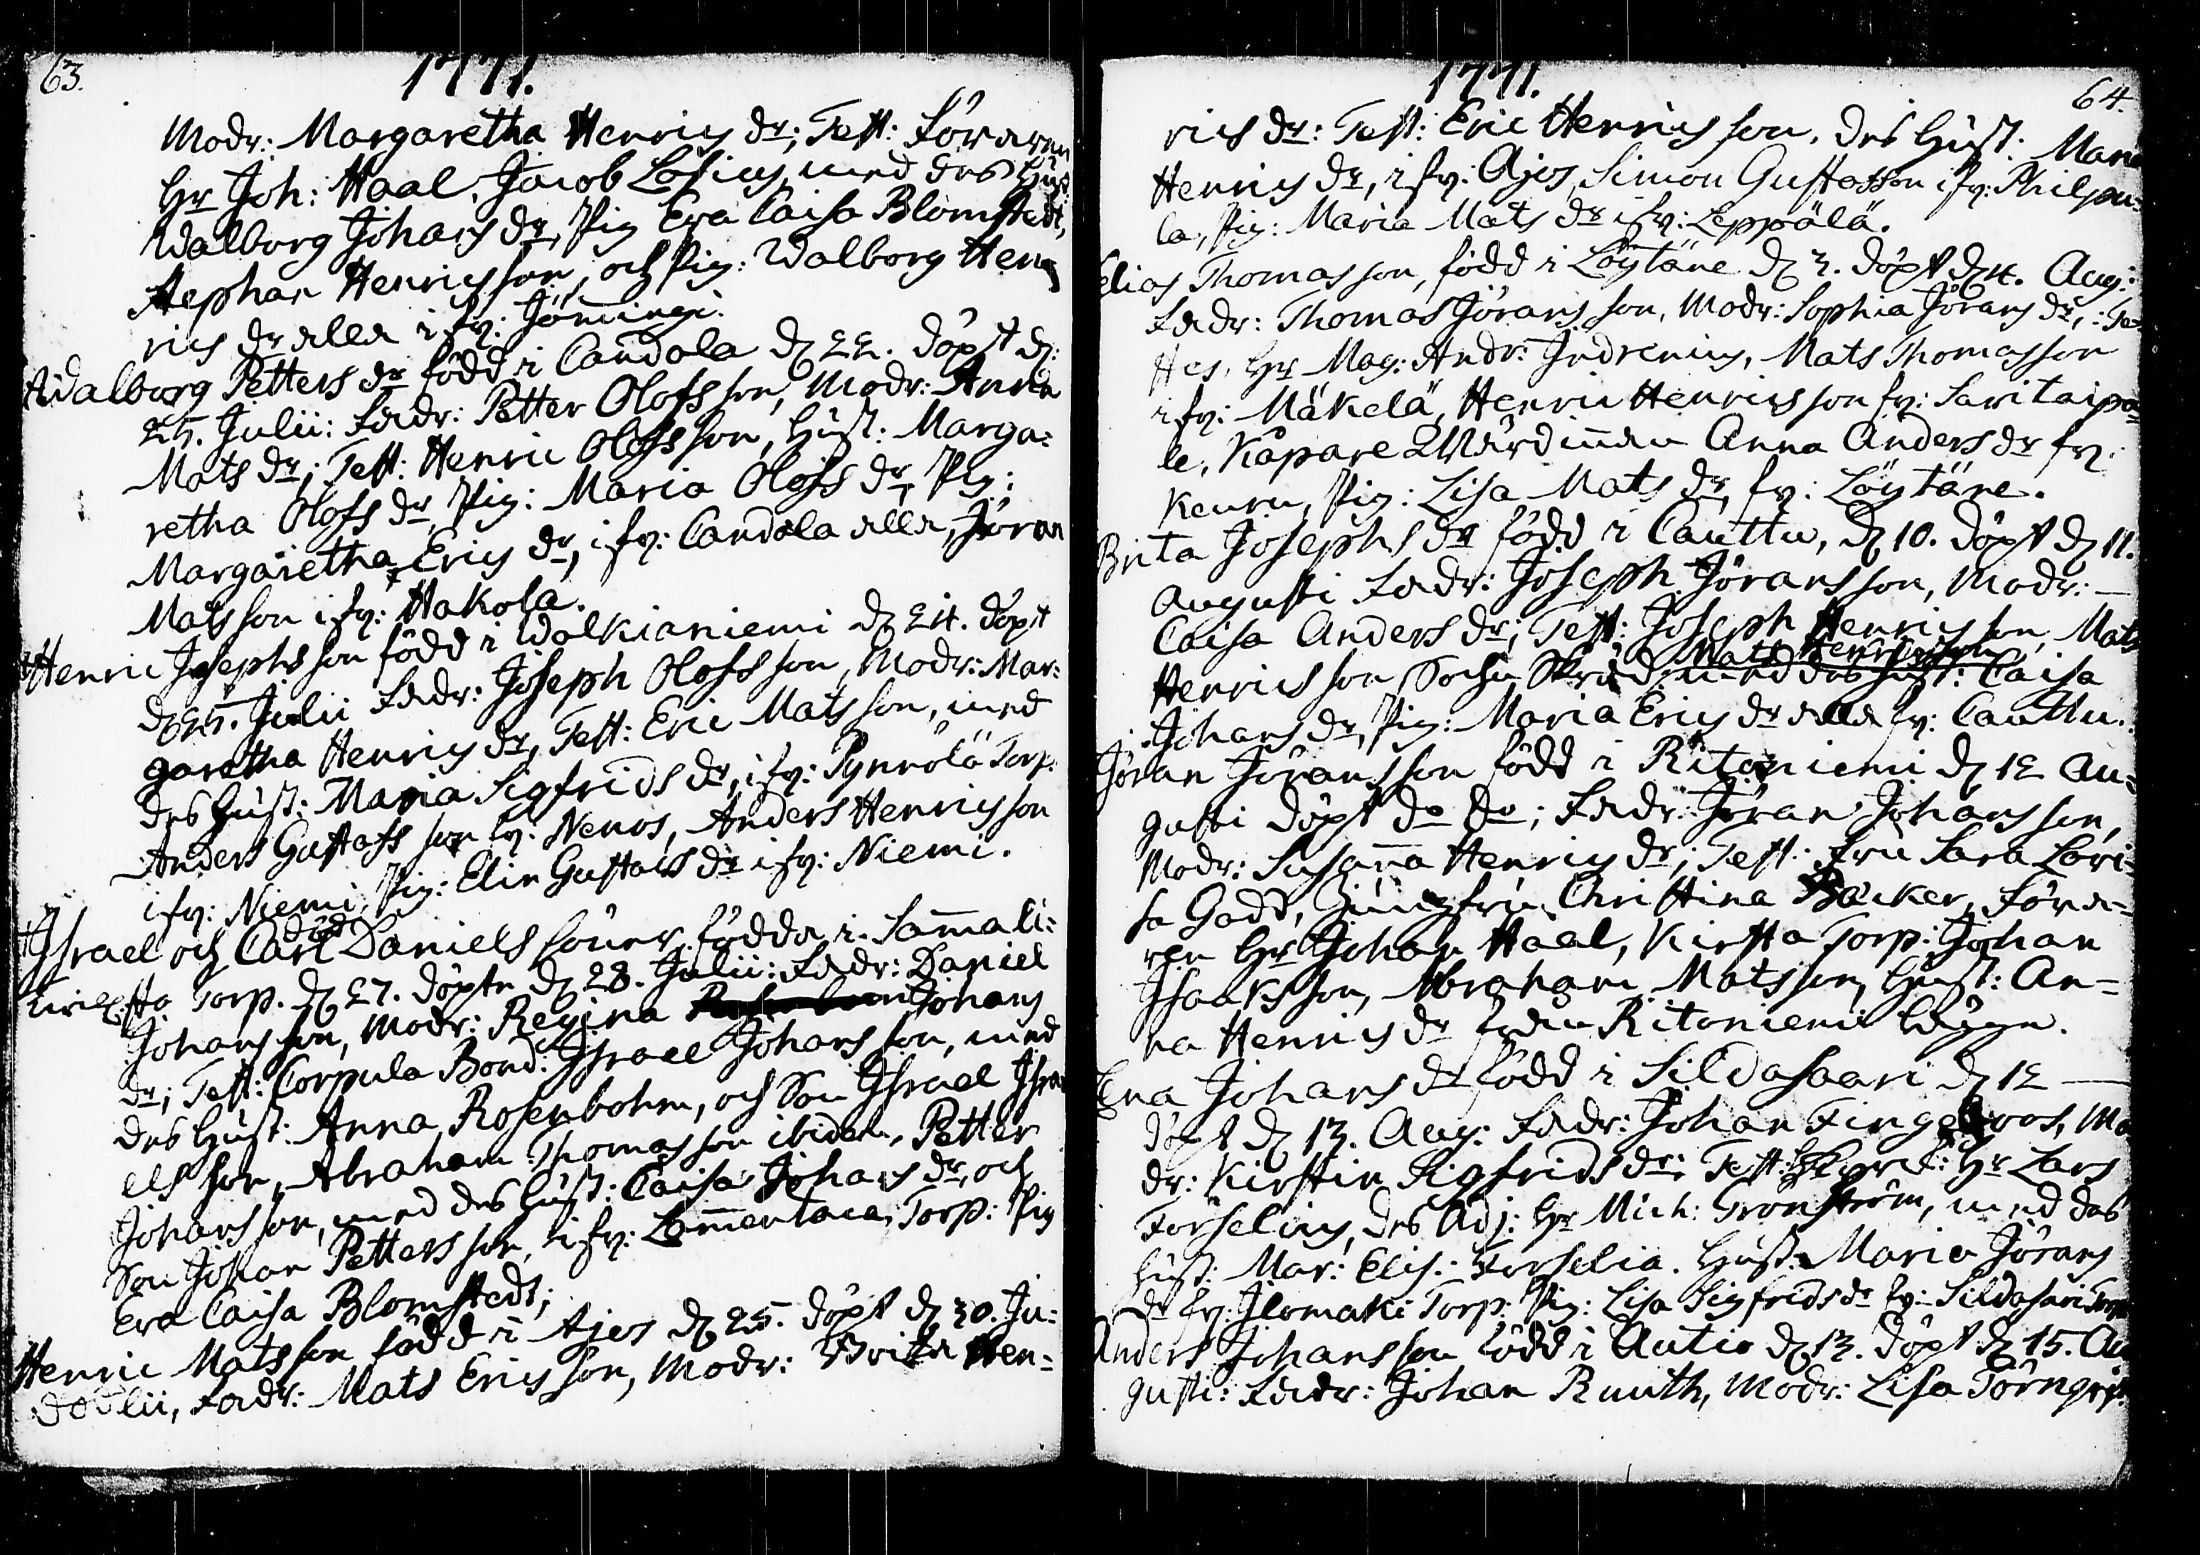 63.
1771.
Modr: Margaretha Henrics dr; Test: Föraren
Hr Joh: Haal, Jacob Lofius, med des Hust:
Walborg Johans dr, Pig Eva Caisa Blomstedt,
Stephan Henricsson, och Pig: Walborg Hen
rics dr alla i fr: Jömingi.
Walborg Petters dr född i Candola d 22. döpt d:
25. Julii: Fadr: Petter Olofsson, Modr: Anna
Mats dr; Test: Henric Olofsson, Hust: Marga:
retha Olofs dr, Pig: Maria Olofs dr, Pig:
Margaretha Erics dr, i fr: Candola alla, Jöran
Matsson i fr: Hakola.
Henric Josephsson född i Wolkianiemi d 24. döpt
d 25. Julii Fadr: Joseph Olofsson, Modr: Mar:
garetha Henrics dr, Test: Eric Matsson, med
des Hust: Maria Sigfrids dr, i fr: Pynnölä Torp.
Anders Gustafsson fr: Nenos, Anders Henricsson
i fr: Niemi, Pig: Elin Gustafs dr i fr: Niemi.
död
Israel och Carl Daniels söner födda i Sam̄ali:
sto Torp. d 27. döpte d 28. Julii: Fadr: Daniel
Johansson, Modr: Regina Johans
dr; Test: Corpula Bond: Israel Johansson, med
des Hust: Anna Rosenbohm, och Son Israel Isra
elsson, Abraham Thomasson ibidem, Petter
Johansson, med des Hust: Caisa Johans dr, och
Son Johan Pettersson, i fr: Lam̄entaca, Torp: Pig
Eva Caisa Blomstedt;
Henric Matsson född i Ajos d 25. döpt d 30. Ju:
död lii, Fadr: Mats Ericsson, Modr: Brita Hen=
1771.
64.
rics dr: Test: Eric Henricsson, des Hust: Maria
Henrics dr, i fr: Ajos, Simon Gustafsson i fr: Philpu:
la, Pig: Maria Mats dr i fr: Leppälä.
Elias Thomasson, född i Löytäne d 3. döpt d 4. Aug:
Fadr: Thomas Jöransson, Modr: Sophia Jörans dr, : Te=
stes, Hr Mag: Andr: Indrenius, Mats Thomasson
i fr: Mäkelä, Henric Henricsson fr: Saritaipa=
le, Kapare Wärdin̄an Anna Anders dr fr:
Keuru, Pig: Lisa Mats dr, fr: Löytäne.
Brita Josephs dr född i Cauttu, d 10. döpt d 11.
Augusti Fadr: Joseph Jöransson, Modr: —
Caisa Anders dr; Test: Joseph Henricsson, Mats
Mats Henricsson
Henricsson Sockn Skräd. med des Hust: Caisa
Johans dr, Pig: Maria Erics dr alla fr: Cauttu.
Jöran Jöransson född i Ritoniemi d 12 Au=
gusti döpt do do; Fadr: Jöran Johansson,
Modr: Susan̄a Henrics dr; Test: Fru Sara Lovi=
sa Gadd, Jungfrun Christina Bäcker, Föra=
ren Hr Johan Haal, Kirsta Torp: Johan
Isaksson, Abraham Matsson, Hust: An=
na Henrics dr från Ritoniemi byggn.
Lena Johans dr född i Sildasaari d 12 —
döpt d 13. Aug: Fadr: Johan Fingerroos, Mo
dr: Kirstin Sigfrids dr: Test: Hr Lars
Forselius, des Adj: Hr Mich: Gronström, med des
Hust: Mar: Elis: Forselia. Hust: Maria Jörans
dr fr: Ilomäki Torp: Pig: Lisa Sigfrids dr fr: Sildasari Torp
Anders Johansson född i Autio d 13. döpt d 15. Au
gusti: Fadr: Johan Ruuth, Modr: Lisa Törnqvist